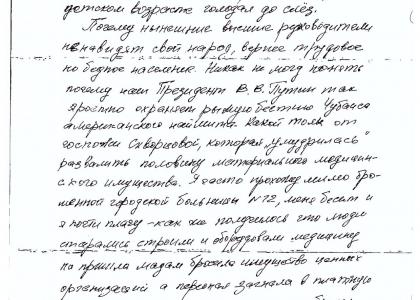 детском возрасте голодал до слёз.
Почему нынешние высшие руководители
ненавидят свой народ, вернее трудовое
но бедное население. Никак не могу понять
почему наш Президент В.В. Путин так
яростно охраняет рыжую бестию Чубайса
американского наймита. Какой толк от
госпожи Скворцовой, которая „умудрилась"
развалить половину материального медицин-
ского имущества. Я часто прохожу мимо бро-
шенной городской больницы №12, меня бесит и
я почти плачу - как же получилось что люди
старались строили и оборудовали медицину
но пришла мадам бросила имущество ценных
организаций а персонал загнала в платную